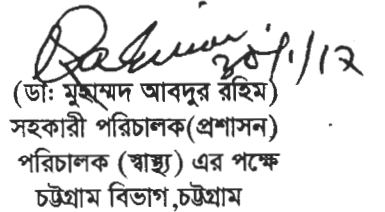 ৩০/১/১২
(ডাঃ মুহাম্মদ আবদুর রহিম)
সহকারী পরিচালক(প্রশাসন)
পরিচালক (স্বাস্থ্য) এর পক্ষে
চট্টগ্রাম বিভাগ,চট্টগ্রাম